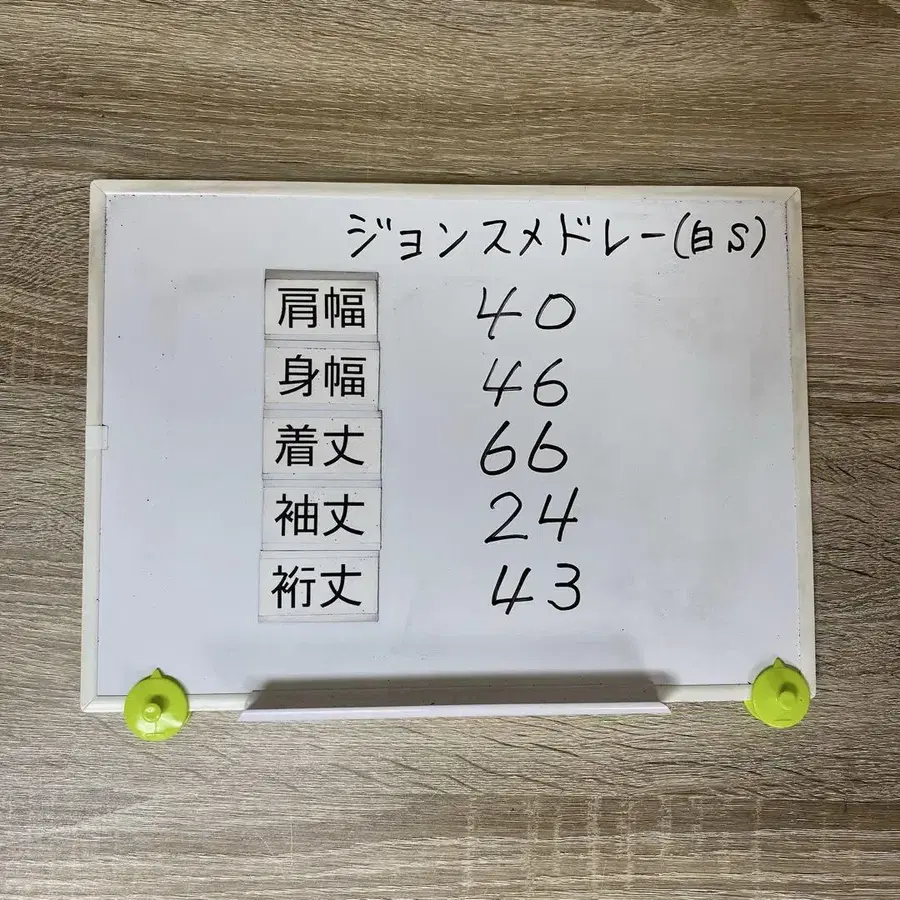 ジョンスメドレー(白S)
肩幅 40
身幅 46
着丈 66
袖丈 24
裄丈 43